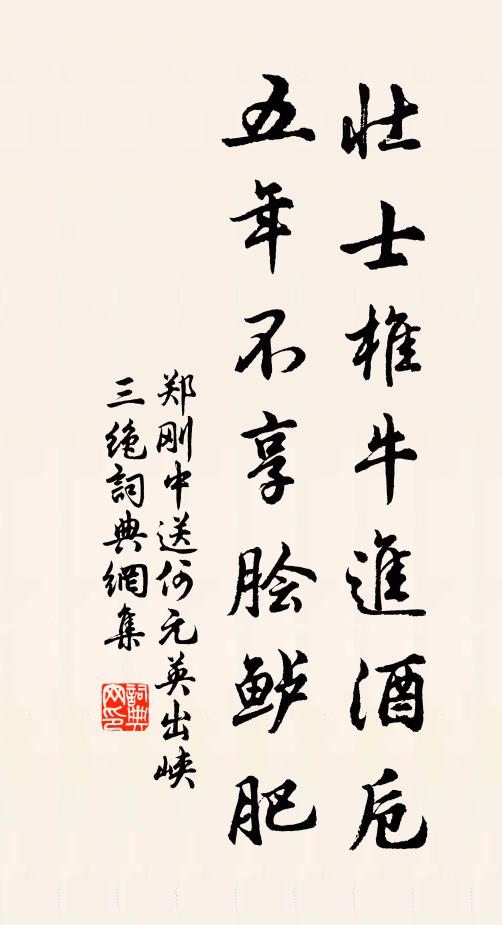 壮士椎牛進酒卮
五年不享脍鲈肥
郑刚中送何元英出峡
三绝詞典網集
詞典网印